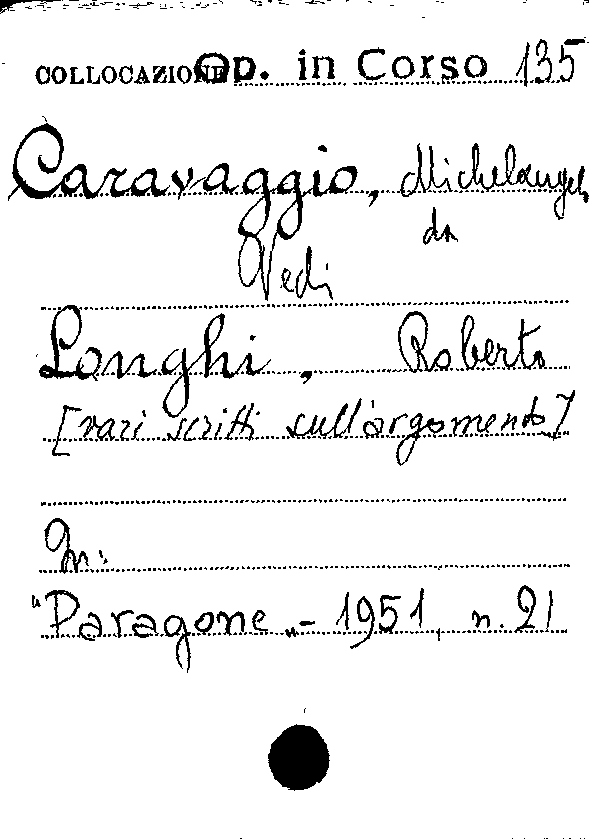 COLLOCAZIONE Op. in Corso 135
Caravaggio, Michelangelo
da
Vedi
Longhi, Roberto
[vari scritti sull'argomento]
In:
"Paragone"- 1951, n. 21